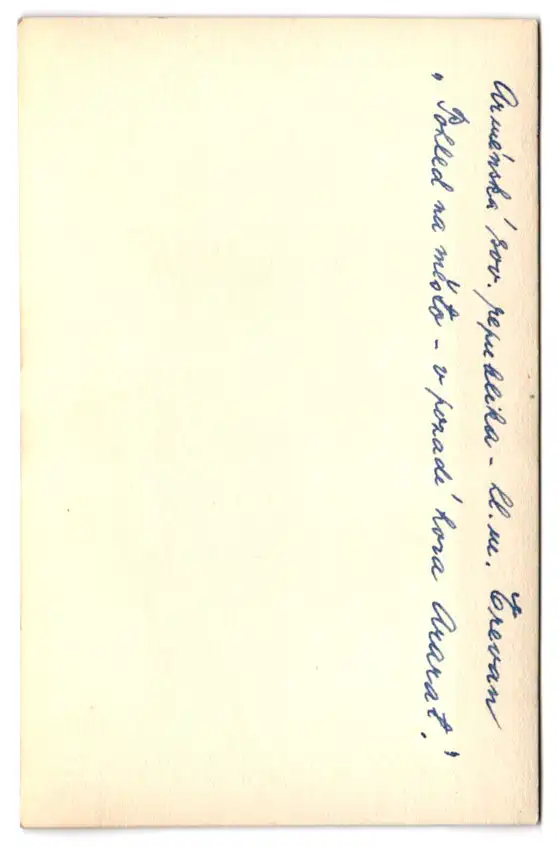 Arménská sov. republika - hl. m. Erevan
„Pohled na město - v pozadí hora Ararat."